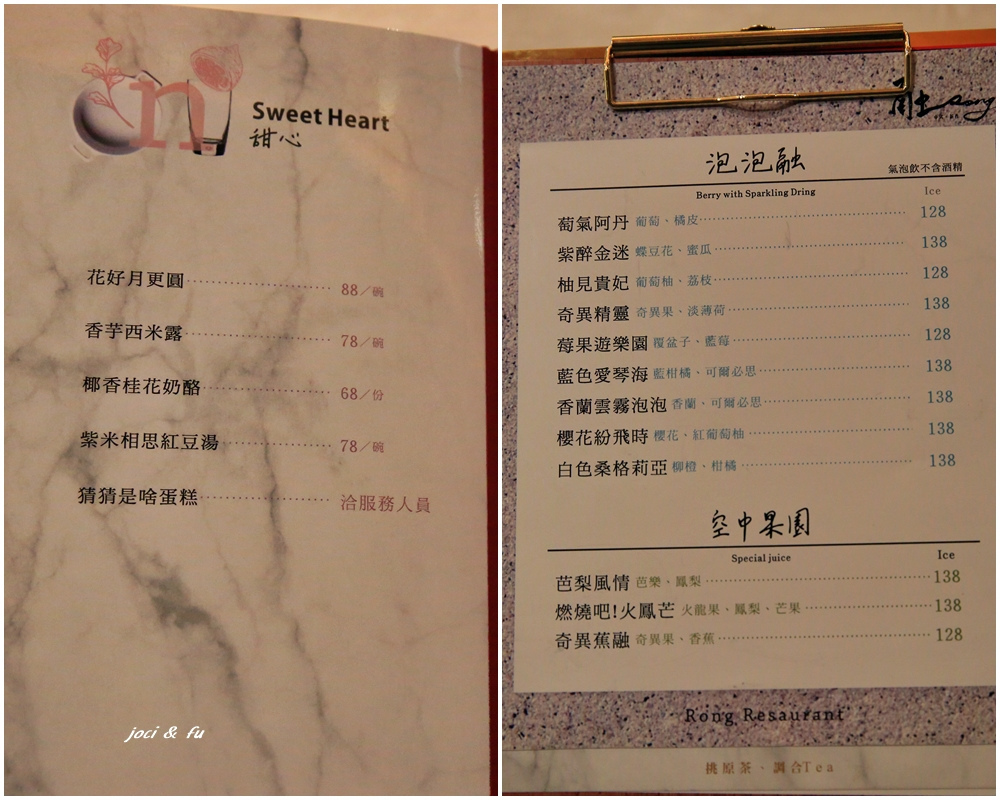 on
Sweet Heart
甜心
花好月更圓 88／碗
香芋西米露 78／碗
椰香桂花奶酪 68／份
紫米相思紅豆湯 78／碗
猜猜是啥蛋糕 洽服務人員
joci & fu
泡泡融
氣泡飲不含酒精
Berry with Sparkling Dring
Ice
萄氣阿丹 葡萄、橘皮 128
紫醉金迷 蝶豆花、蜜瓜 138
柚見貴妃 葡萄柚、荔枝 128
奇異精靈 奇異果、淡薄荷 138
莓果遊樂園 覆盆子、藍莓 128
藍色愛琴海 藍柑橘、可爾必思 138
香蘭雲霧泡泡 香蘭、可爾必思 138
櫻花紛飛時 櫻花・紅葡萄柚 138
白色桑格莉亞 柳橙、柑橘 138
空中果園
Special juice
Ice
芭梨風情 芭樂・鳳梨 138
燃燒吧!火鳳芒 火龍果、鳳梨、芒果 138
奇異蕉融 奇異果、香蕉 128
Rong Resaurant
桃原茶、調合Tea